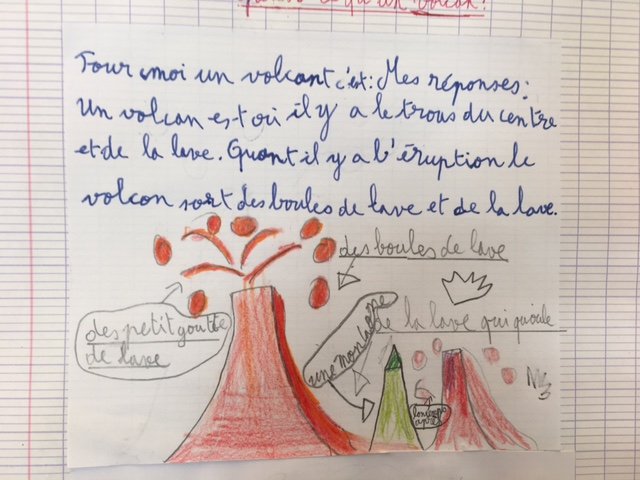 qu'un volcan?
Pour moi un volcant c'est: Mes réponses:
Un volcan es-t où il y a le trous du centre
et de la lave. Quant il y a l'éruption le
volcon sort des boules de lave et de la lave.
des boules de lave
des petit goutte
de lave
une montagne
de la lave qui qu'oule
lontemps
après